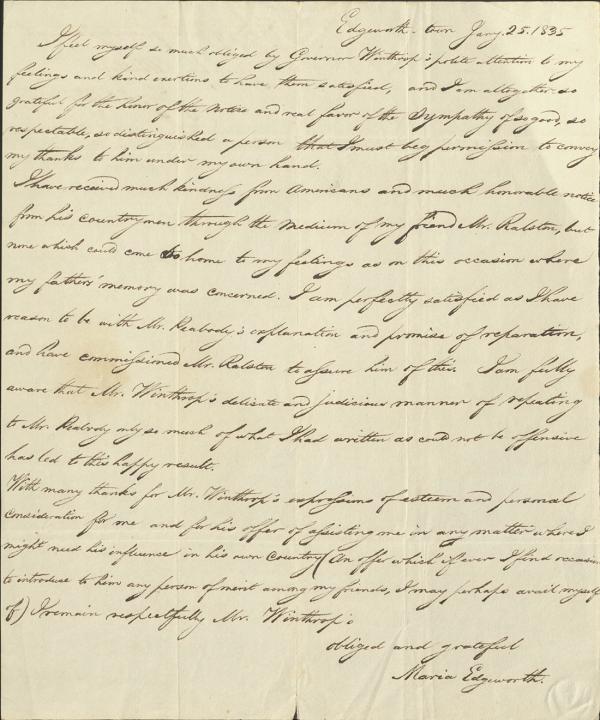 Edgeworth-town Jany. 25. 1835
I feel myself so much obliged by Governor Winthrop's polite attention to my
feelings and kind exertions to have them satisfied, and I am altogether so
grateful for the honor of the notice and real favor of the Sympathy of so good, so
respectable, so distinguished a person that I must beg permission to convey
my thanks to him under my own hand.
I have received much kindness from Americans and much honorable notice
from his countrymen through the medium of my friend Mr. Ralston, but
none which could come so home to my feelings as on this occasion where
my fathers' memory was concerned. I am perfectly satisfied as I have
reason to be with Mr. Peabody's explanation and promise of reparation,
and have commissioned Mr. Ralston to assure him of this. I am fully
aware that Mr. Winthrop's delicate and judicious manner of repeating
to Mr. Peabody only so much of what I had written as could not be offensive
has led to this happy result.
With many thanks for Mr. Winthrop's expressions of esteem and personal
consideration for me and for his offer of assisting me in any matter where I
might need his influence in his own Country (An offer which if ever I find occasion
to introduce to him any person of merit among my friends, I may perhaps avail myself
of) I remain respectfully Mr. Winthrop's
obliged and grateful
Maria Edgeworth.